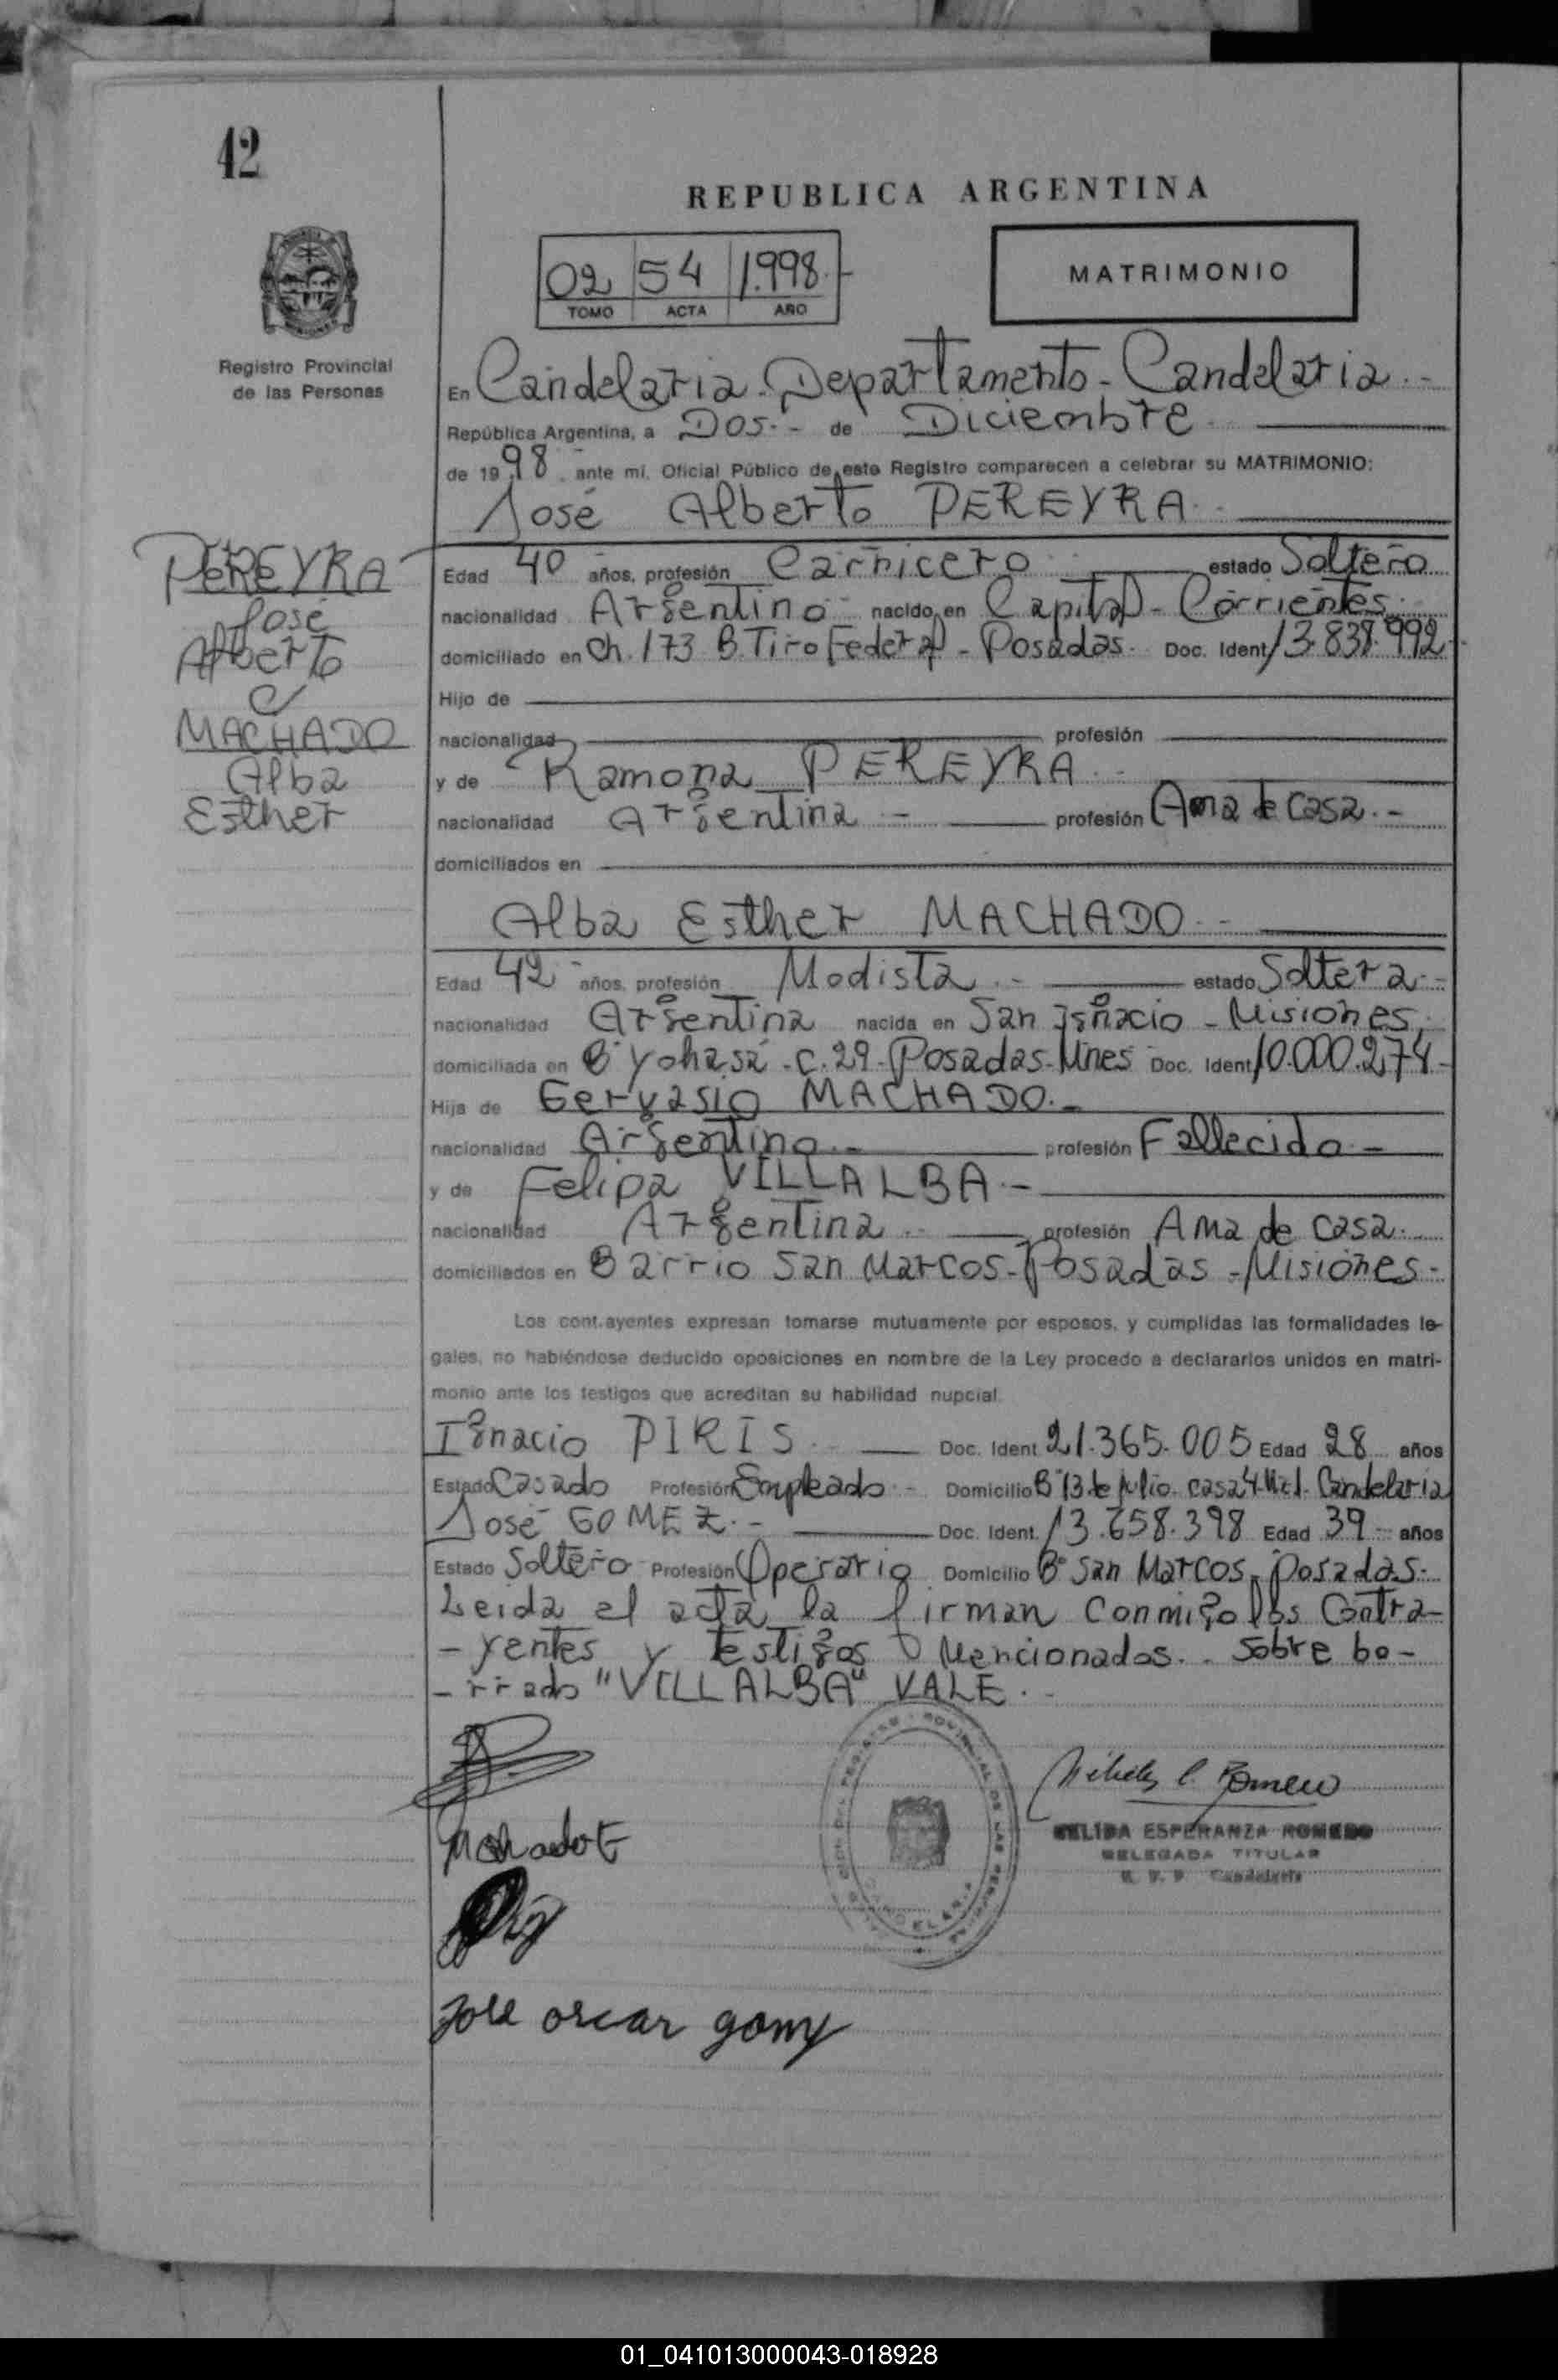 42
REPUBLICA ARGENTINA
02 54 1.998.-
TOMO ACTA AÑO
MATRIMONIO
Registro Provincial
de las Personas
En Candelaria - Departamento - Candelaria.-
República Argentina, a Dos.- de Diciembre
de 19 98 ante mi, Oficial Público de este Registro comparecen a celebrar su MATRIMONIO:
José Alberto PEREYRA.-
PEREYRA
José
Alberto
c/
MACHADO
Alba
Esther
Edad 40 años, profesión Carnicero estado Soltero
nacionalidad Argentino nacido en Capital - Corrientes.
domiciliado en Ch. 173 B. Tiro Federal - Posadas. Doc. Ident. 13.838.992.-
Hijo de
nacionalidad profesión
y de Ramona PEREYRA.-
nacionalidad Argentina.- profesión Ama de casa.-
domiciliados en
Alba Esther MACHADO.-
Edad 42 años, profesión Modista.- estado Soltera.-
nacionalidad Argentina nacida en San Ignacio - Misiones,
domiciliada en B° Yohasá - C. 29 - Posadas - Mnes Doc. Ident. 10.000.274.-
Hija de Gervasio MACHADO.-
nacionalidad Argentino.- profesión Fallecido.-
y de Felipa VILLALBA.-
nacionalidad Argentina.- profesión Ama de casa.
domiciliados en Barrio San Marcos - Posadas - Misiones.-
Los contrayentes expresan tomarse mutuamente por esposos, y cumplidas las formalidades le-
gales, no habiéndose deducido oposiciones en nombre de la Ley procedo a declararlos unidos en matri-
monio ante los testigos que acreditan su habilidad nupcial.
Ignacio PIRIS.- Doc. Ident. 21.365.005 Edad 28 años
Estado Casado Profesión Empleado.- Domicilio B° 13 de Julio casa 4 Candelaria
José GOMEZ.- Doc. Ident. 13.658.398 Edad 39 años
Estado Soltero Profesión Operario Domicilio B° San Marcos - Posadas.-
Leida el acta la firman conmigo los Contra-
-yentes y testigos Mencionados.- Sobre bo-
-rrado "VILLALBA" VALE.-
Machado E
Jose oscar gomez
NELIDA ESPERANZA ROMERO
DELEGADA TITULAR
R. P. P. Candelaria
01_041013000043-018928